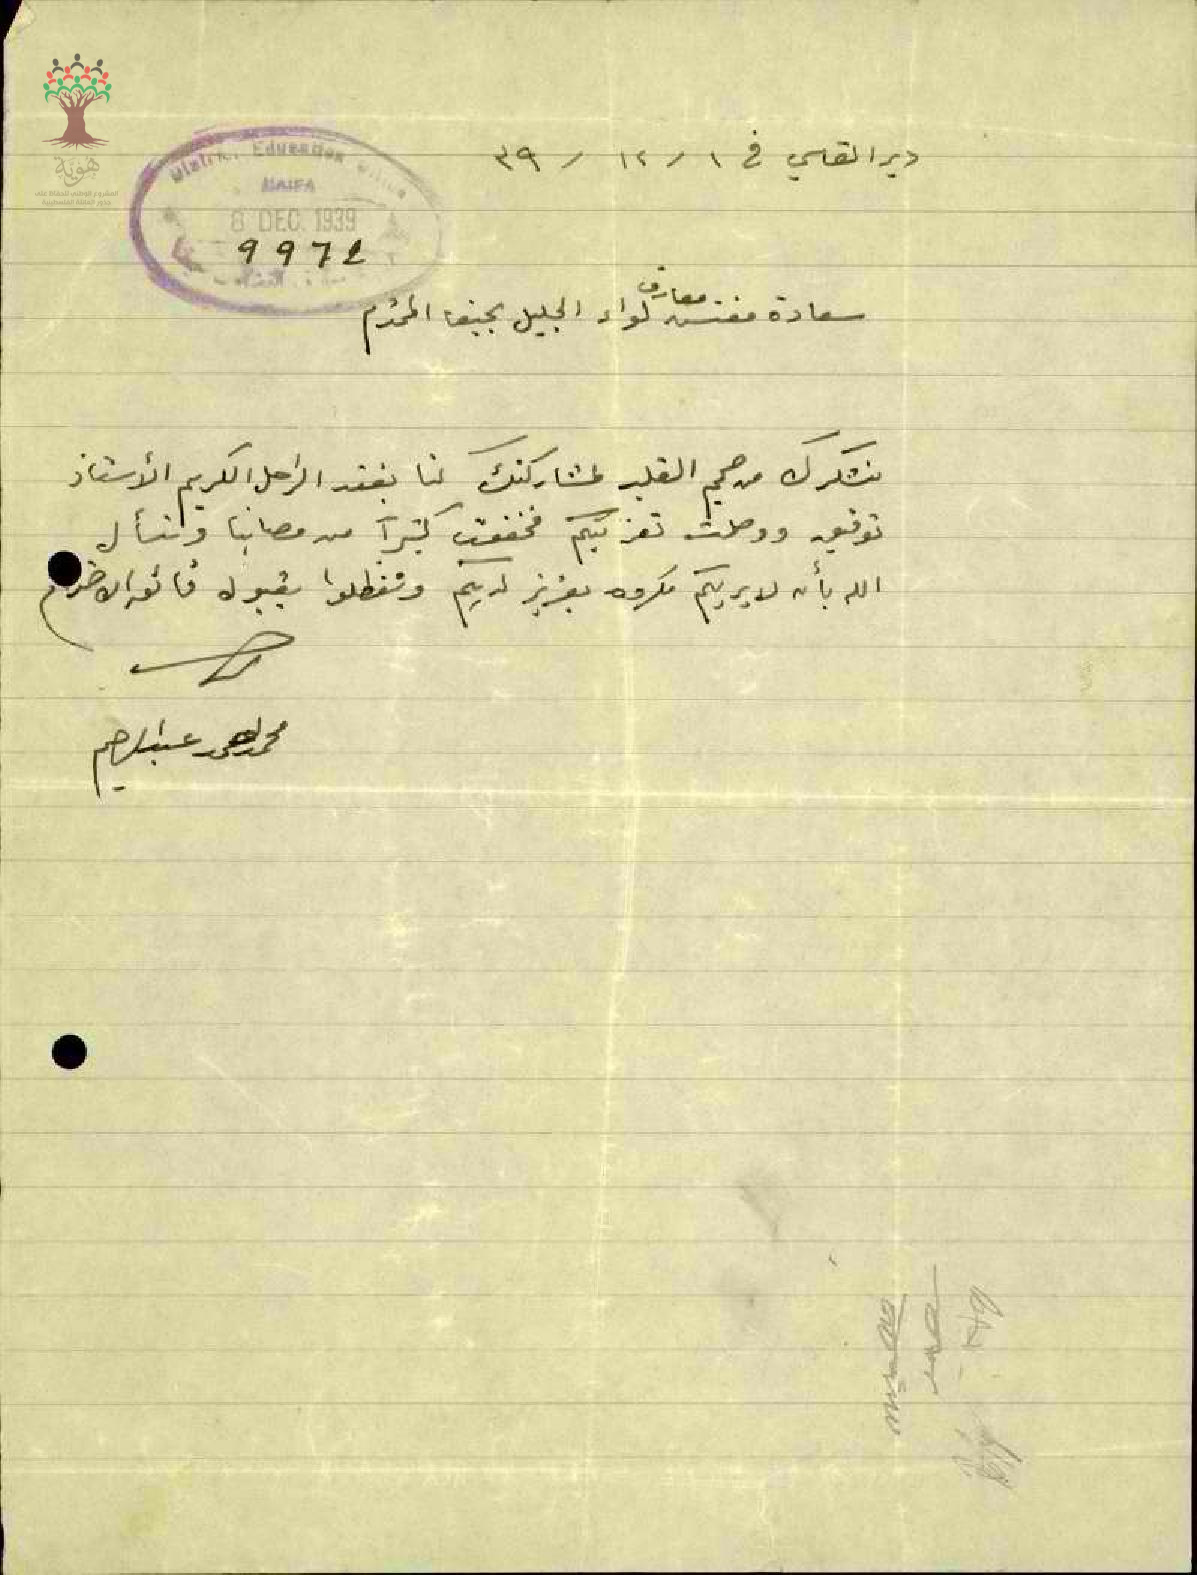 هوية
المشروع الوطني للحفاظ على
جذور العائلة الفلسطينية
دير القاسي في ١ / ١٢ / ٣٩
District Education Office
HAIFA
8 DEC. 1939
9972
معارف
سعادة مفتش لواء الجليل بحيفا المحترم
نشكرك من صميم القلب لمشاركتك لنا بفقد الراحل الكريم الأستاذ
توفيق ووصلت تعزيتكم فخففت كثيراً من مصابنا ونسأل
الله بأن لا يريكم مكروه بعزيز لديكم وتفضلوا بقبول فائق الاحترام
محمد احمد عبدالرحيم